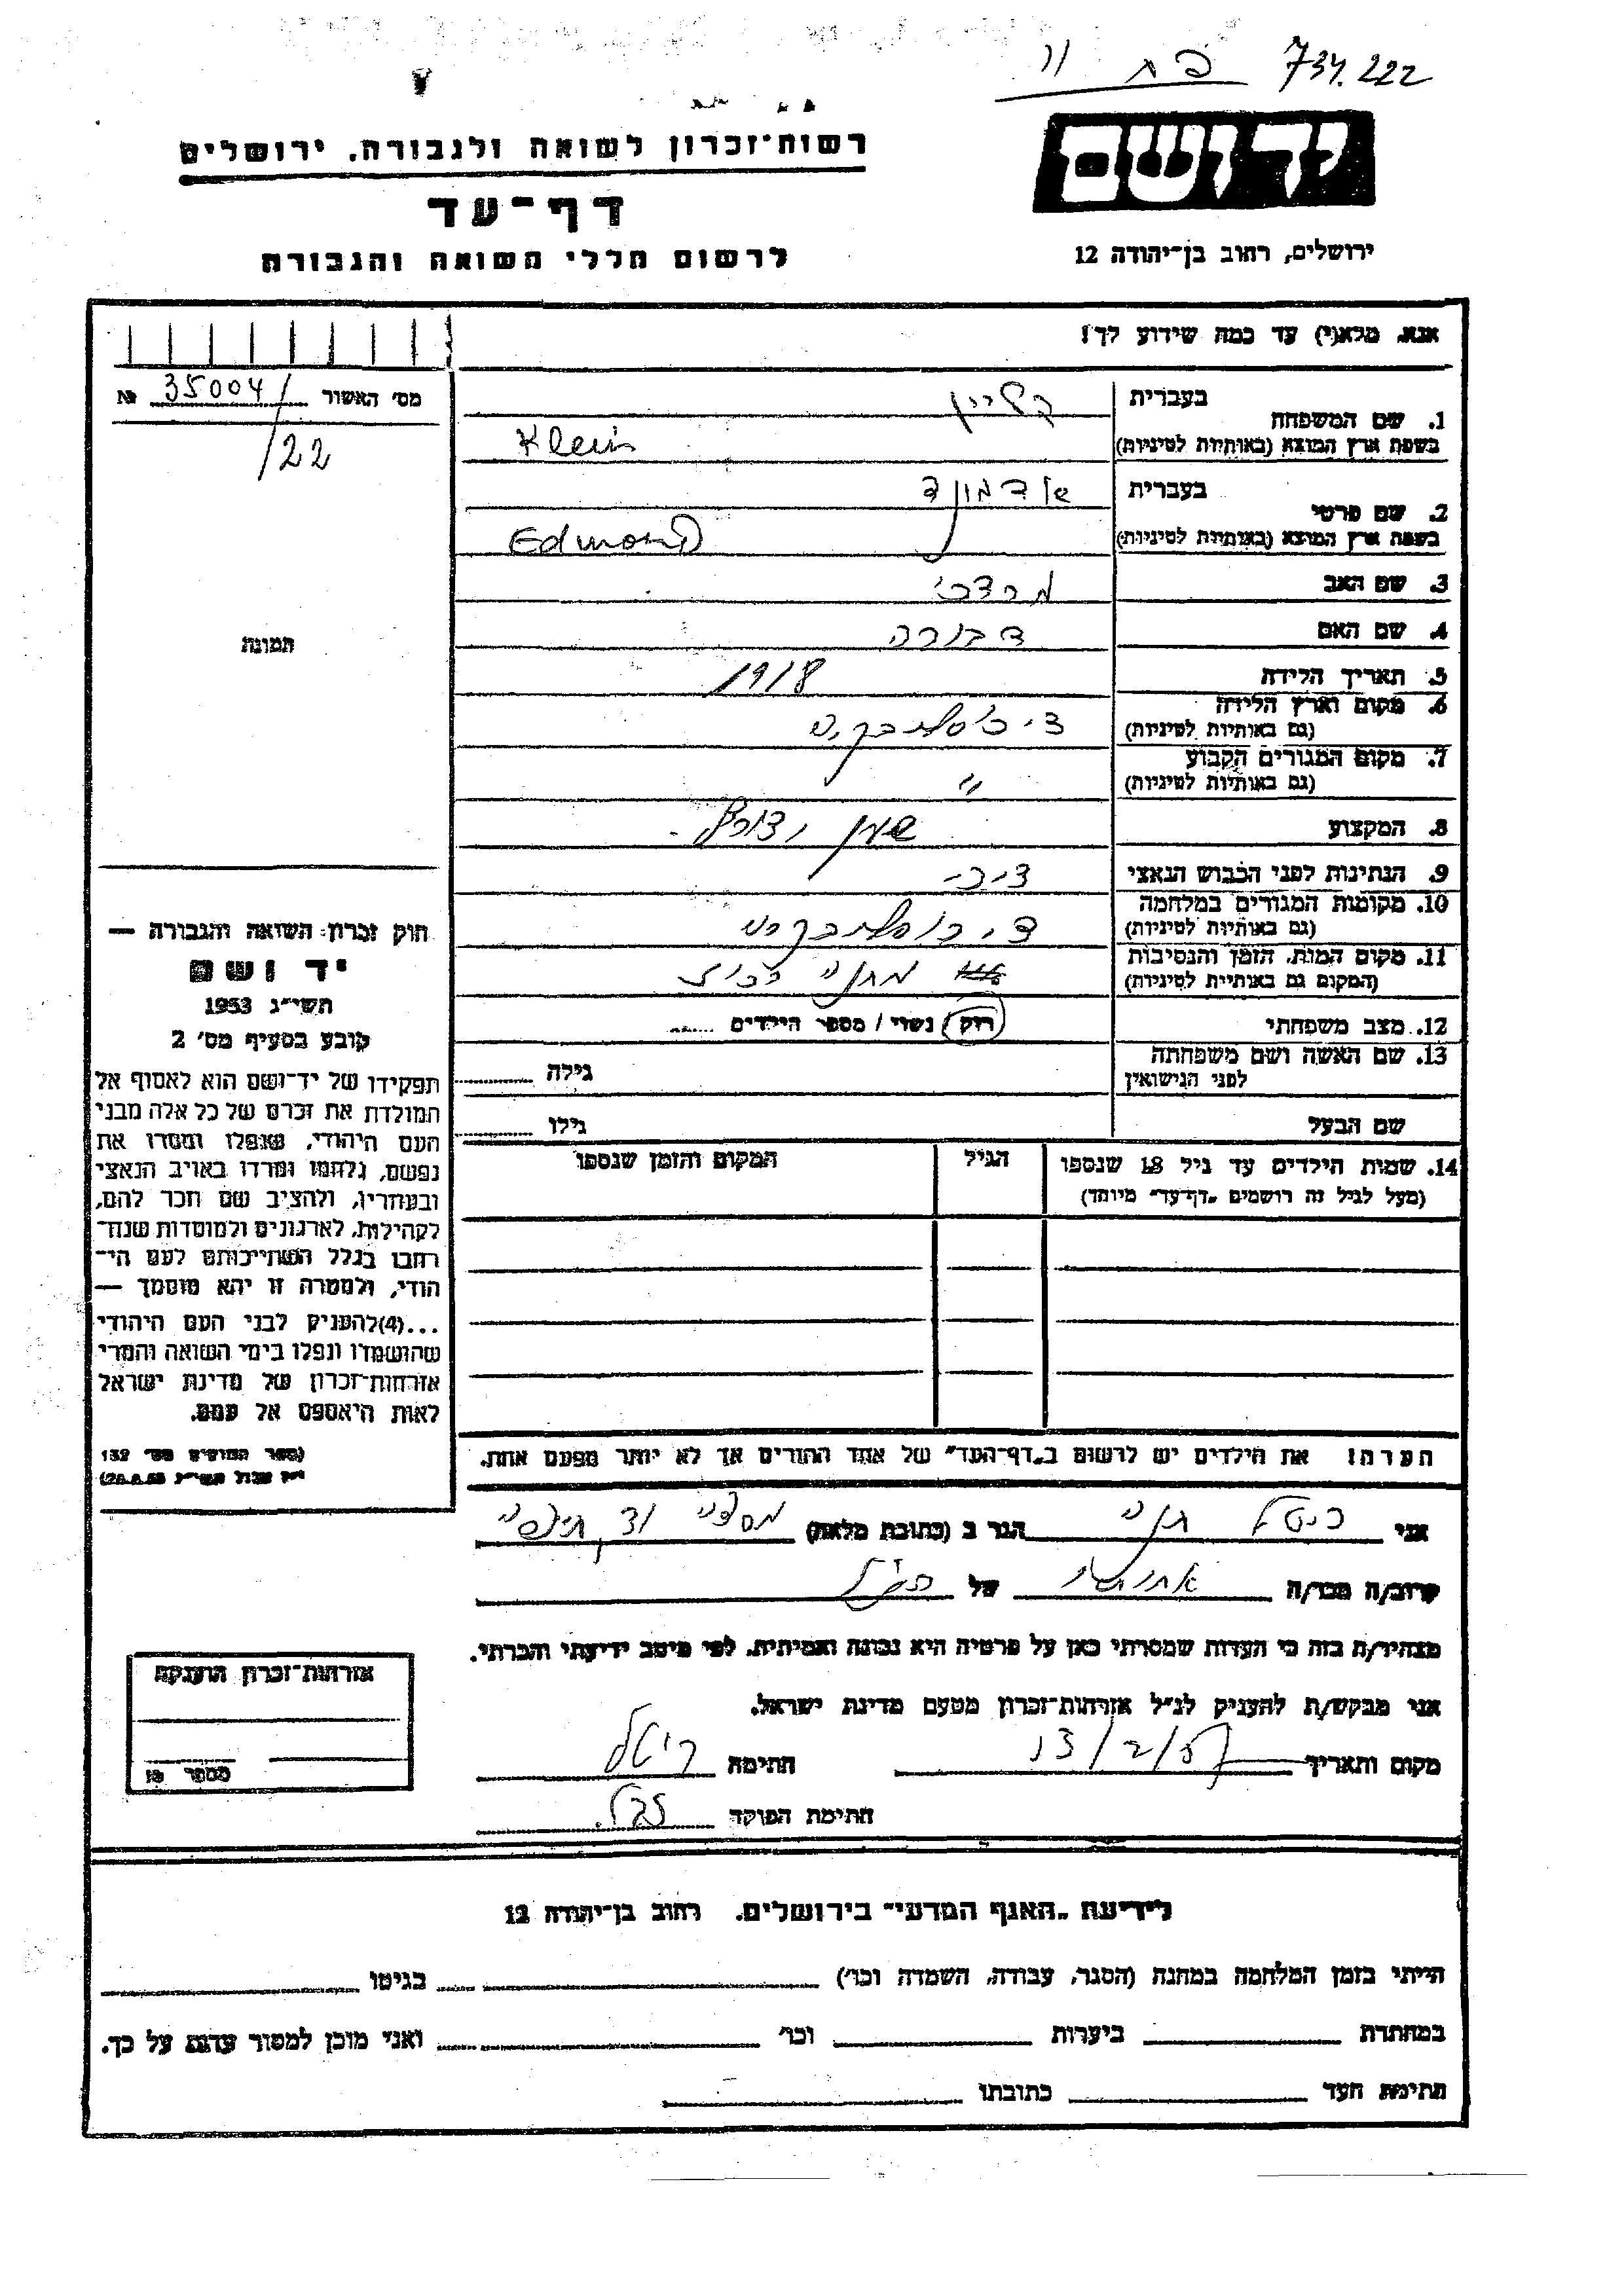 734.222
יד ושם
רשות־זכרון לשואה ולגבורה. ירושלים
דף־עד
לרשום חללי השואה והגבורה
ירושלים, רחוב בן־יהודה 12
אנא, מלא(י) עד כמה שידוע לך!
מס' האשור 35004/ №
/22
תמונה
1. שם המשפחה
בעברית קליין
בשפת ארץ המוצא (באותיות לטיניות) Klein
2. שם פרטי
בעברית אדמונד
בשפת ארץ המוצא (באותיות לטיניות) Edmond
3. שם האב מרדכי
4. שם האם דבורה
5. תאריך הלידה 1918
6. מקום וארץ הלידה
(גם באותיות לטיניות)
7. מקום המגורים הקבוע
(גם באותיות לטיניות) "
8. המקצוע שען
9. הנתינות לפני הכבוש הנאצי צ'כי
10. מקומות המגורים במלחמה
(גם באותיות לטיניות)
11. מקום המות, הזמן והנסיבות
(המקום גם באותיות לטיניות) מחנה
12. מצב משפחתי רוק / נשוי / מספר הילדים
13. שם האשה ושם משפחתה
לפני הנישואין גילה
שם הבעל גילו
14. שמות הילדים עד גיל 18 שנספו הגיל המקום והזמן שנספו
(מעל לגיל זה רושמים "דף־עד" מיוחד)
הערה: את הילדים יש לרשום ב"דף־העד" של אחד ההורים אך לא יותר מפעם אחת.
חוק זכרון השואה והגבורה —
יד ושם
תשי"ג 1953
קובע בסעיף מס' 2
תפקידו של יד־ושם הוא לאסוף אל
המולדת את זכרם של כל אלה מבני
העם היהודי, שנפלו ומסרו את
נפשם, נלחמו ומרדו באויב הנאצי
ובעוזריו, ולהציב שם וזכר להם,
לקהילות, לארגונים ולמוסדות שנח־
רבו בגלל השתייכותם לעם הי־
הודי, ולמטרה זו יהא מוסמך —
...(4) להעניק לבני העם היהודי
שהושמדו ונפלו בימי השואה והמרי
אזרחות־זכרון של מדינת ישראל
לאות היאספם אל עמם.
(ספר החוקים מס' 132
י"ז אלול תשי"ג 28.8.53)
אני הגר ב (כתובת מלאה)
קרוב/ה מכר/ה של
מצהיר/ה בזה כי העדות שמסרתי כאן על פרטיה היא נכונה ואמיתית. לפי מיטב ידיעתי והכרתי.
אני מבקש/ת להעניק לנ"ל אזרחות־זכרון מטעם מדינת ישראל.
מקום ותאריך 13/2/57 חתימה
חתימת הפוקד
אזרחות־זכרון הוענקה
מספר
לידיעת "האגף המדעי" בירושלים. רחוב בן־יהודה 12
הייתי בזמן המלחמה במחנה (הסגר, עבודה, השמדה וכו') בגיטו
במחתרת ביערות וכו' ואני מוכן למסור עדות על כך.
חתימת העד כתובתו